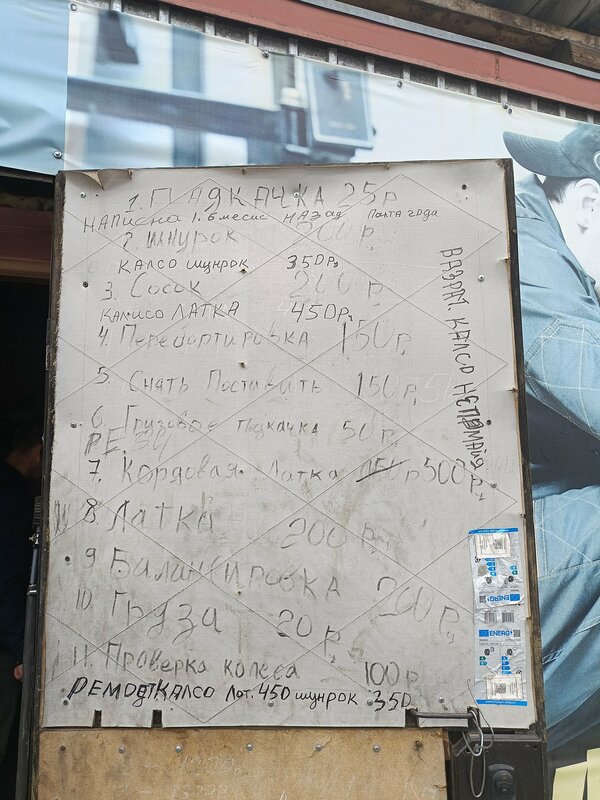 1. ПАДКАЧКА 25р
НАПИСНО 1.5 месис НАЗАД Полта года
2. Шнурок 200 р.
КАЛСО шцнрок 350Р,
3. Сосок 200 р.
КАЛИСО ЛАТКА 450Р,
4. Перебортировка 150р,
5. Снять Поставить 150р,
6. Грузовое подкачка 50р,
7. Кордовая Латка 500р,
8. Латка 200 р,
9 Балансировка 20 р,
10. Груза 20 р,
11. Проверка колеса 100р
РЕМОТ КАЛСО Лот. 450 шцнрок 350
ВАЗРМ. КАЛСО
ENERG
ENERG